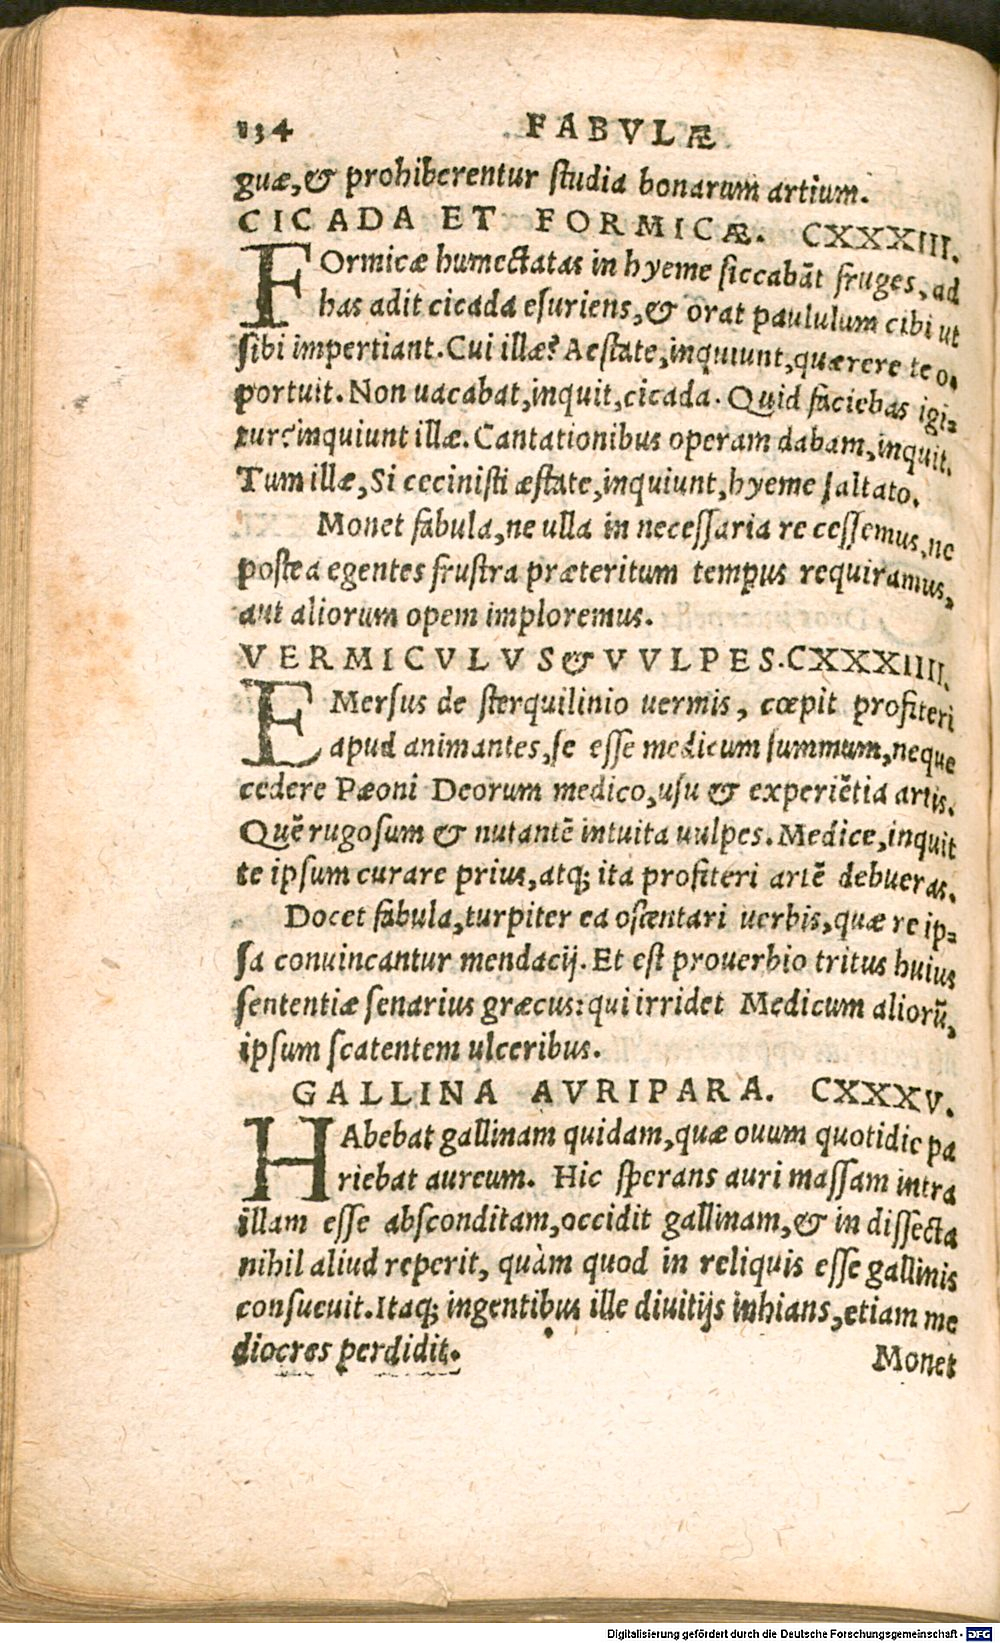 134 FABVLÆ
guæ, & prohiberentur studia bonarum artium.
CICADA ET FORMICÆ. CXXXIII.
FOrmicæ humectatas in hyeme siccabāt fruges, ad
has adit cicada esuriens, & orat paululum cibi ut
sibi impertiant. Cui illæ? Aestate, inquiunt, quærere te o-
portuit. Non uacabat, inquit, cicada. Quid faciebas igi=
tur? inquiunt illæ. Cantationibus operam dabam, inquit.
Tum illæ, Si cecinisti æstate, inquiunt, hyeme saltato.
Monet fabula, ne ulla in necessaria re cessemus, ne
postea egentes frustra præteritum tempus requiramus,
aut aliorum opem imploremus.
VERMICVLVS & VVLPES. CXXXIIII.
EMersus de sterquilinio uermis, cœpit profiteri
apud animantes, se esse medicum summum, neque
cedere Pæoni Deorum medico, usu & experiētia artis.
Quē rugosum & nutantē intuita uulpes. Medice, inquit
te ipsum curare prius, atq; ita profiteri artē debueras.
Docet fabula, turpiter ea ostentari uerbis, quæ re ip=
sa conuincantur mendacij. Et est prouerbio tritus huius
sententiæ senarius græcus: qui irridet Medicum aliorū,
ipsum scatentem ulceribus.
GALLINA AVRIPARA. CXXXV.
HAbebat gallinam quidam, quæ ouum quotidie pa
riebat aureum. Hic sperans auri massam intra
illam esse absconditam, occidit gallinam, & in dissecta
nihil aliud reperit, quàm quod in reliquis esse gallinis
consueuit. Itaq; ingentibus ille diuitijs inhians, etiam me
diocres perdidit.
Monet
Digitalisierung gefördert durch die Deutsche Forschungsgemeinschaft - DFG